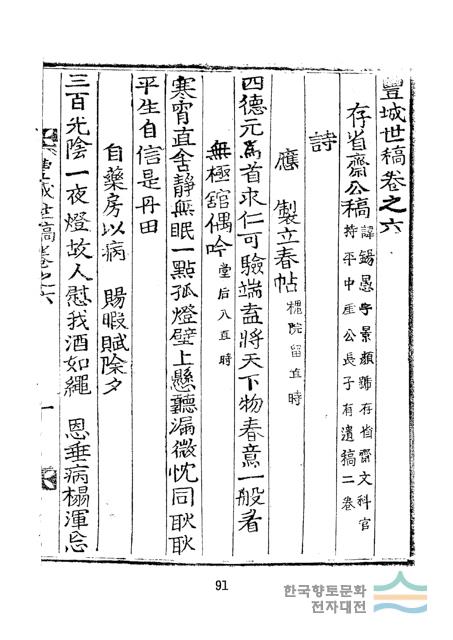 豐城世稿卷之六
存省齋公稿 諱錫愚字景顏號存省齋文科官
持平中崖公長子有遺稿二卷
詩
應 製立春帖 槐院留直時
四德元爲首求仁可驗端盍將天下物春意一般看
無極舘偶吟 堂后入直時
寒宵直舍靜無眠一點孤燈壁上懸聽漏微忱同耿耿
平生自信是丹田
自藥房以病 賜暇賦除夕
三百光陰一夜燈故人慰我酒如繩 恩垂病榻渾忘
豐城世稿卷之六 一
91
한국향토문화
전자대전